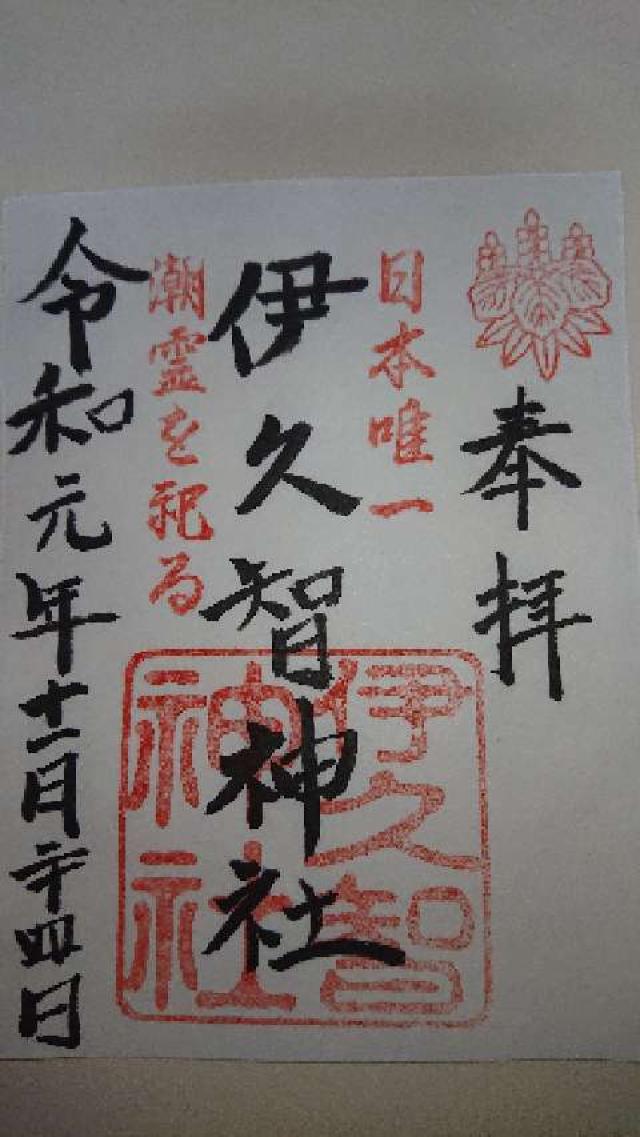 奉拝
日本唯一
伊久智神社
潮霊を祀る
伊久智
神社
令和元年十一月二十四日